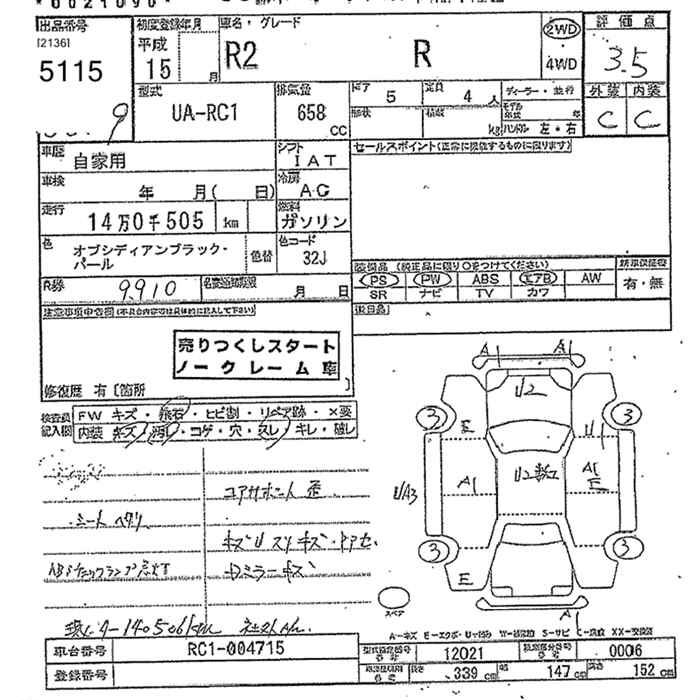 出品番号
[2136]
5115
初度登録年月
平成
15 月
車名・グレード
R2 R
2WD
4WD
評価点
3.5
外装 内装
C C
9
型式
UA-RC1
排気量
658
CC
ドア 5
定員 4 人
形状
積載 kg
ディーラー・並行
モデル年式 年
ハンドル 左・右
車歴
自家用
シフト
IAT
車検
年 月( 日)
冷房
AC
走行
14万0千505 km
燃料
ガソリン
色
オブシディアンブラック・
パール
色替
色コード
32J
R券
9,910
名変通知期限
月 日
セールスポイント(正常に機能するものに限ります)
装備品 (純正品に限り○をつけてください)
PS PW ABS エアB AW
SR ナビ TV カワ
新車保証書
有・無
後日品
注意事項申告欄(不具合内容は具体的に記入して下さい)
売りつくしスタート
ノークレーム車
修復歴 有〔箇所
検査員
記入欄
FW キズ・飛石・ヒビ割・リペア跡・×要
内装 キズ・汚レ・コゲ・穴・スレ・キレ・破レ
コアサポート 歪
シート ヘタリ
ABSチェックランプ点灯
Dミラーキズ
A A
U2
3 E U 3
A U2 A
E
U/A3
3 3
E
A
スペア
A-キズ E-エクボ・U-凹み W-補修跡 S-サビ C-腐食 XX-交換済
車台番号 RC1-004715
登録番号
型式指定番号 12021
類別区分番号 0006
長さ 339 cm 幅 147 cm 高さ 152 cm